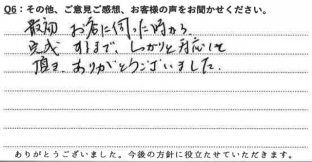 Q6：その他、ご意見ご感想、お客様の声をお聞かせください。
最初 お店に伺った時から、
完成 するまで、しっかりと対応して
頂き、ありがとうございました。
ありがとうございました。今後の方針に役立たせていただきます。